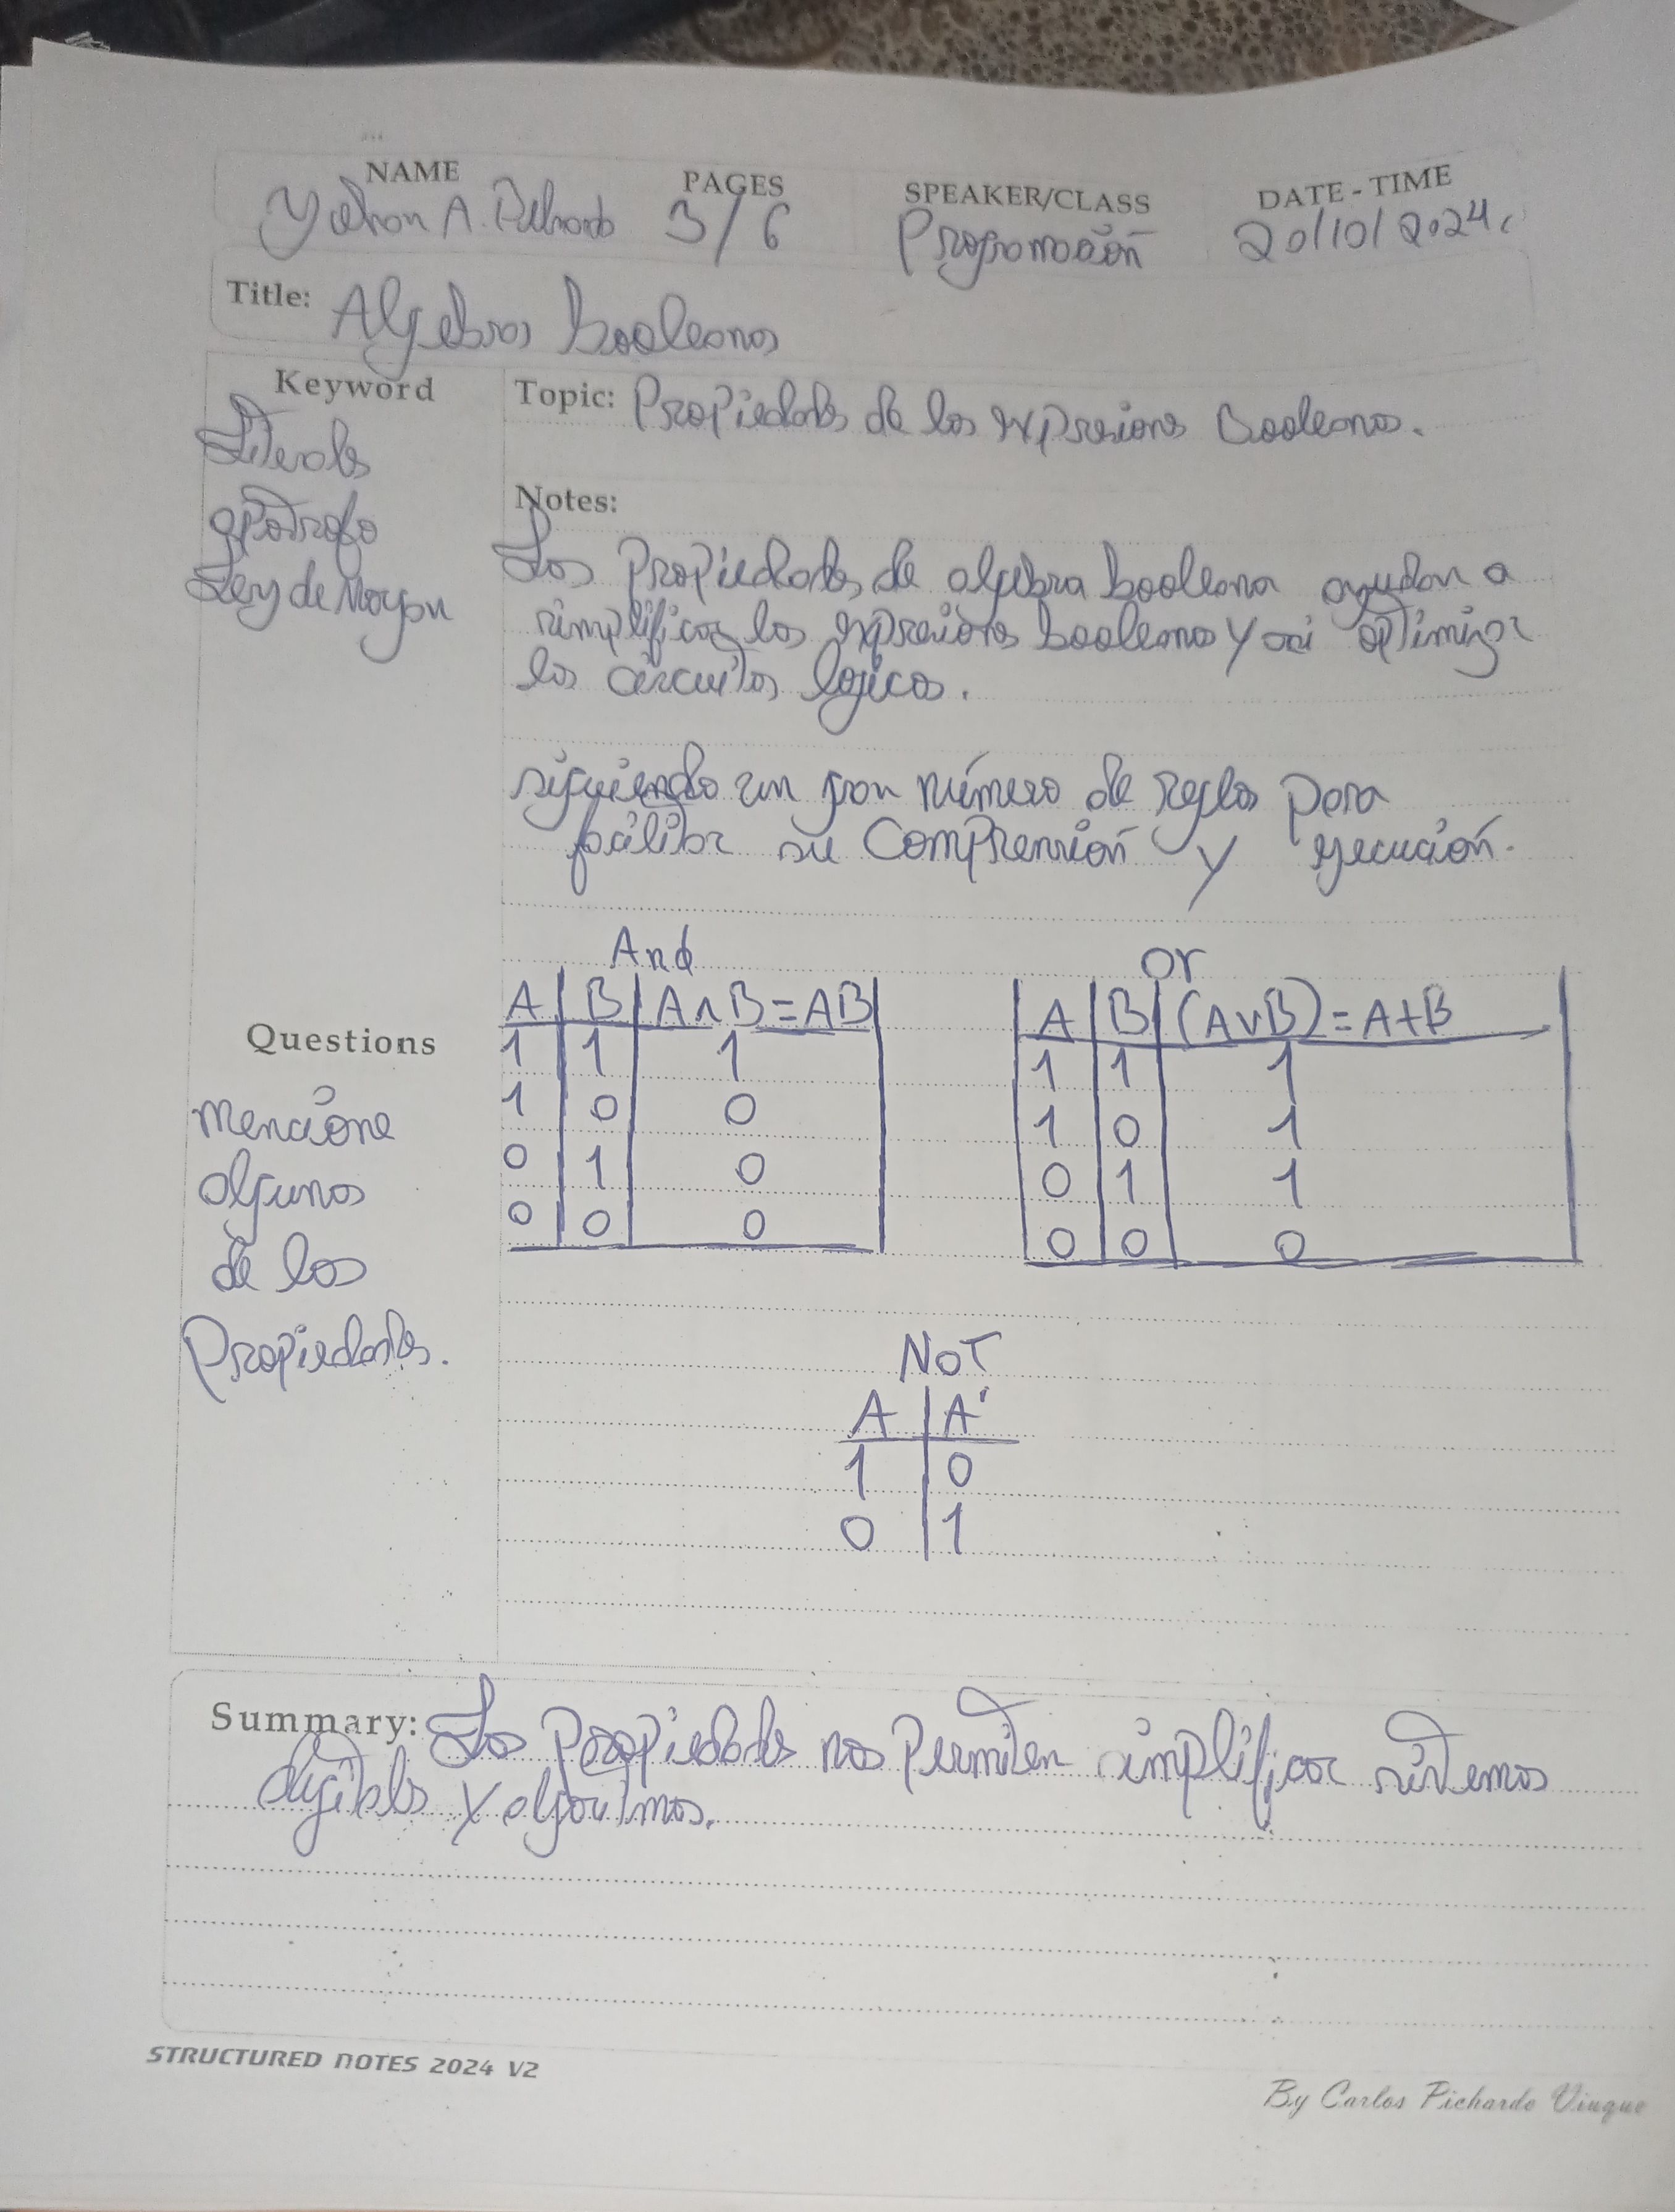 NAME PAGES SPEAKER/CLASS DATE - TIME
A. 3/6 Programación 20/10/2024.
Title: Algebras booleanas
Keyword
Literales
apóstrofo
Ley de Morgan
Topic: Propiedades de las expresiones Booleanas.
Notes:
Las Propiedades de algebra booleana ayudan a
simplificar las expresiones booleanas y así optimizar
los circuitos logicos.
siguiendo un gran número de reglas para
facilitar su Comprensión y ejecución.
And
A B A∧B=AB
1 1 1
1 0 0
0 1 0
0 0 0
or
A B (A∨B)=A+B
1 1 1
1 0 1
0 1 1
0 0 0
NOT
A A'
1 0
0 1
Questions
Mencione
algunas
de las
Propiedades.
Summary: Las Propiedades nos Permiten simplificar sistemas
digitales y algoritmos.
STRUCTURED NOTES 2024 V2
By Carlos Pichardo Viuque